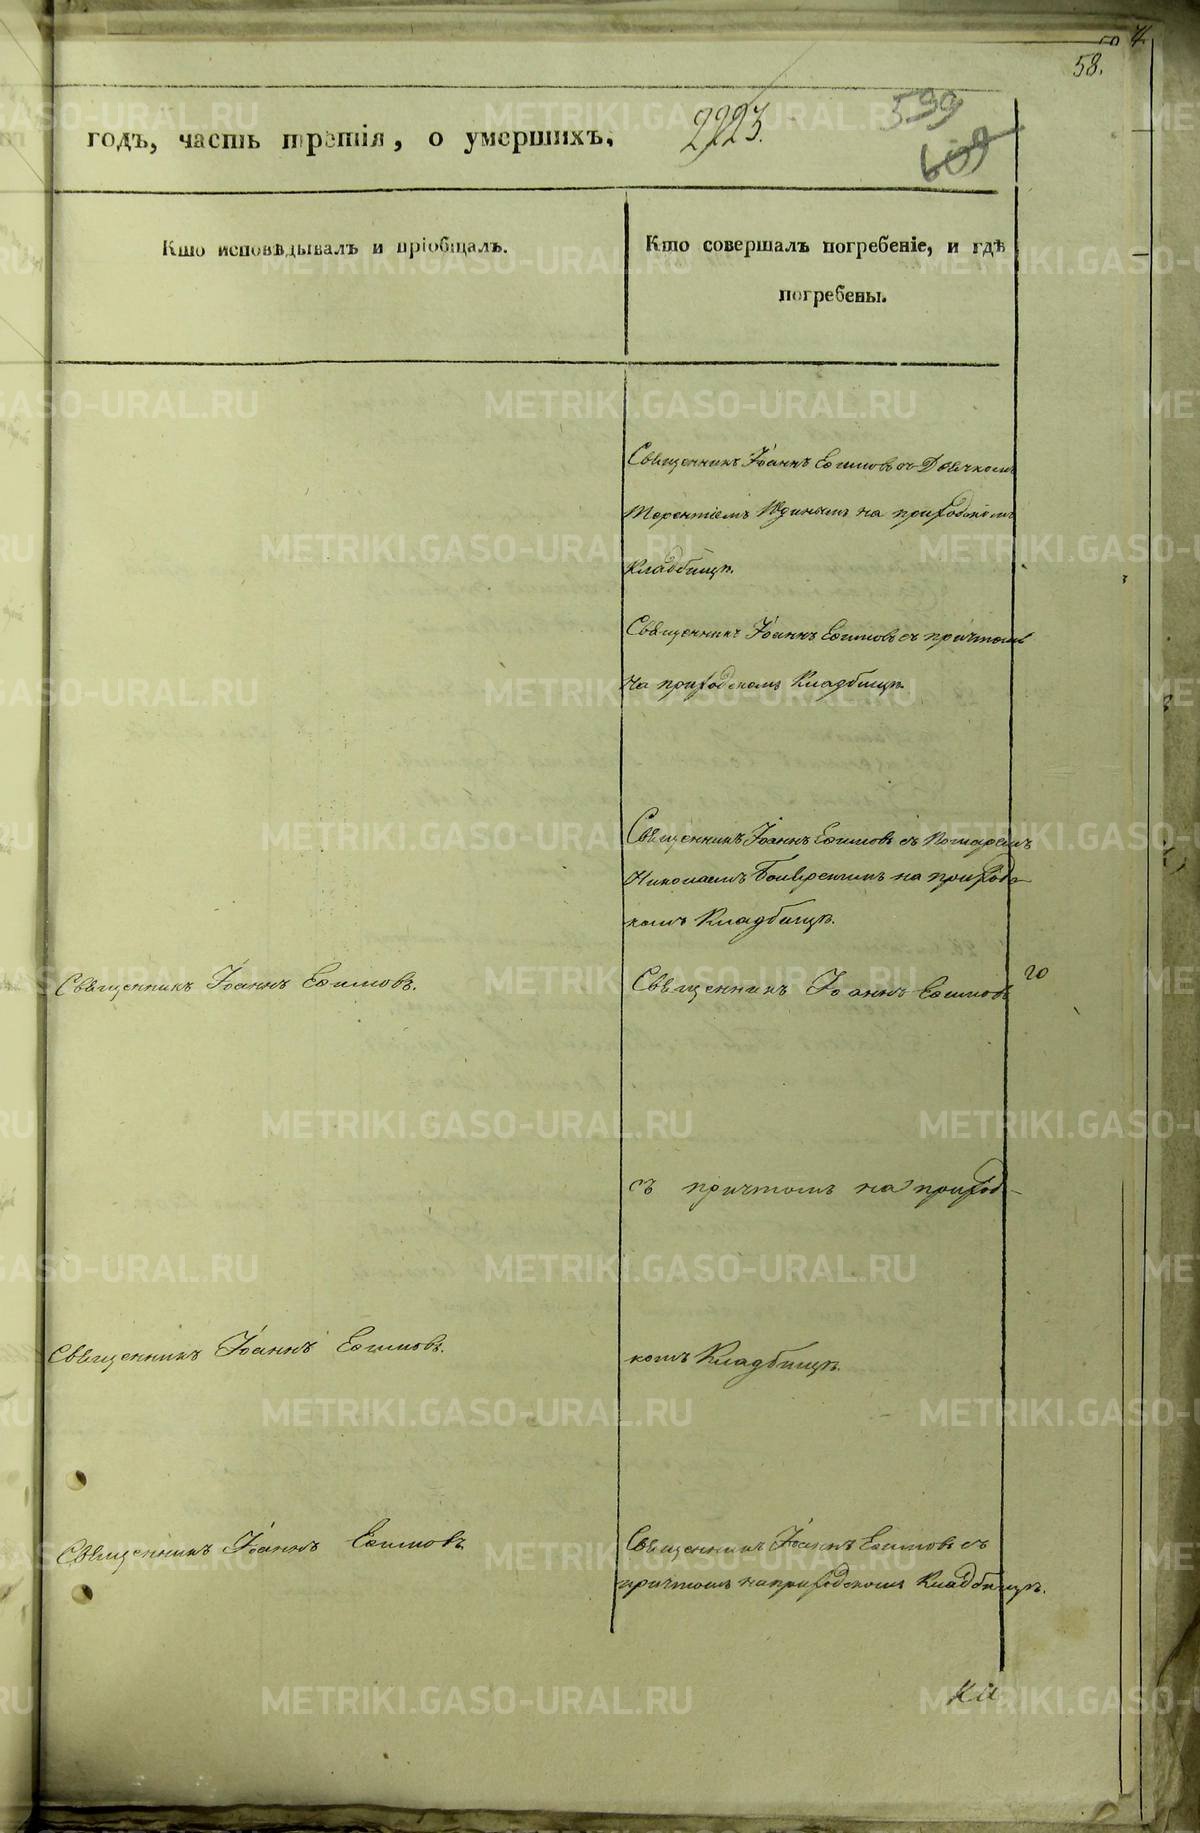 58.
годъ, часть третія, о умершихъ.
2223.
599
609
Кто исповѣдывалъ и пріобщалъ.
Кто совершалъ погребеніе, и гдѣ
погребены.
Священникъ Іоаннъ Ефимовъ съ Дьячкомъ
Терентіемъ Юдинымъ на приходскомъ
Кладбищѣ.
Священникъ Іоаннъ Ефимовъ съ причтомъ
На приходскомъ Кладбищѣ.
Священникъ Іоаннъ Ефимовъ съ Пономаремъ
Николаемъ на приходс-
комъ Кладбищѣ.
Священникъ Іоаннъ Ефимовъ.
Священникъ Іоаннъ Ефимовъ
съ причтомъ на приход-
Священникъ Іоаннъ Ефимовъ.
комъ Кладбищѣ.
Священникъ Іоаннъ Ефимовъ
Священникъ Іоаннъ Ефимовъ съ
причтомъ на приходскомъ Кладбищѣ.
METRIKI.GASO-URAL.RU